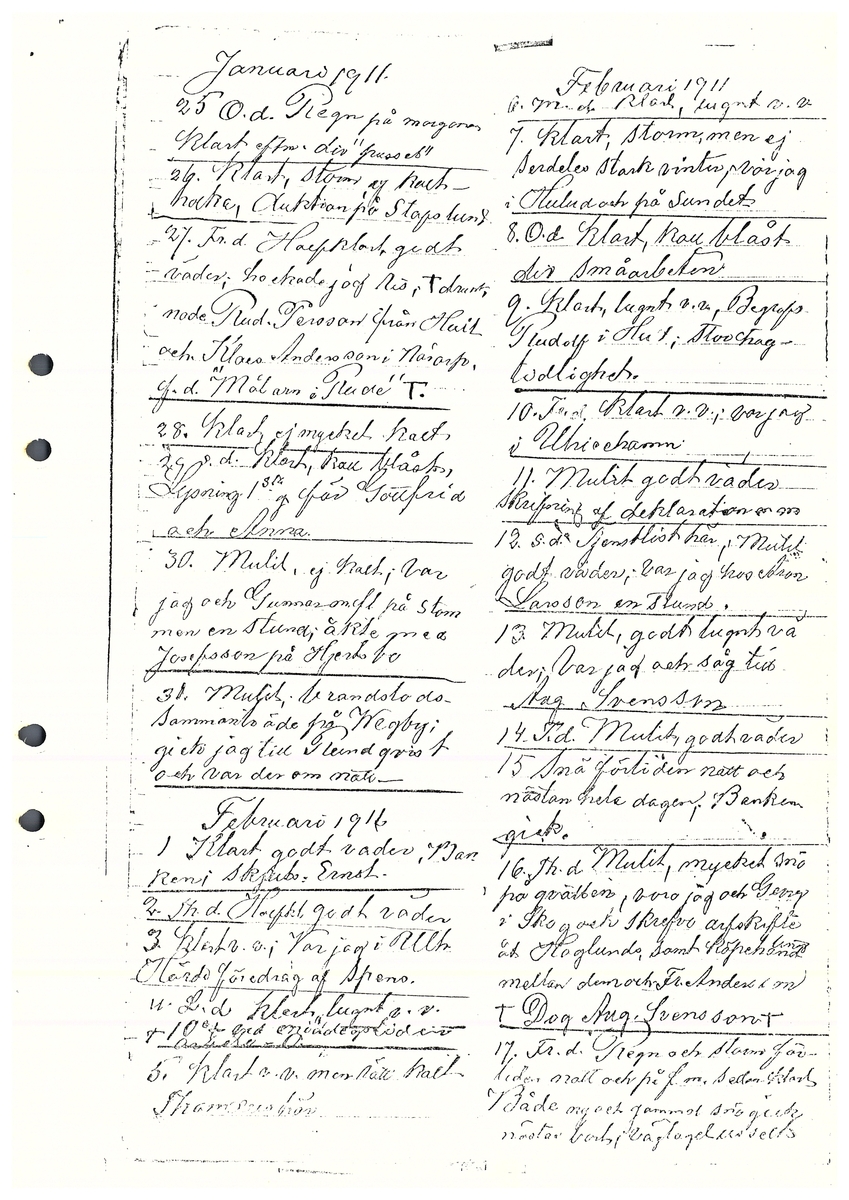 Januari 1911.
25 O.d. Regn på morgonen
Klart efm. div "pusset"
26. Klart, storm, ej kallt
Auktion på Stapslund
27. Fr.d. Halfklart, godt
väder; hackade jag ris; † drunk-
nade Rud. Persson från Hult
och Klaes Andersson i Näsarp,
f.d. "Målarn i Rude" †.
28. Klart, ej mycket kallt
29 s.d. Klart, kall blåst,
Lysning 1sta g för Gottfrid
och Anna.
30. Mulit, ej kallt; var
jag och Gunnar på Stom
men en stund; åkte med
Josefsson på Hjertsbo
31. Mulit, brandstods-
sammanträde på Wegby;
gick jag till Rundqvist
och var der om natt.
Februari 1911
1 Klart godt väder, Ban
ken; Ernst.
2. Th.d. Halfkl. godt väder
3. Klart v.v; Var jag i Ulh.
Hörde föredrag af Spens.
4. L.d Klart, lugnt v.v.
† 10 ved
5. Klart v.v. men rått kallt
Februari 1911
6. M.d. Klart, lugnt v.v
7. Klart, storm, men ej
serdeles stark vinter, var jag
i Hulu och på Sundet
8. O.d. Klart, kall blåst
div småarbeten
9. Klart, lugnt v.v., Begrofs
Rudolf i Hult; stor hög-
tidlighet.
10. Fr.d. Klart v.v.; var jag
i Ulricehamn
11. Mulit godt väder
Skrifning af deklaration m m
12. s.d. här; Mulit
godt väder; var jag hos
Larsson en stund.
13. Mulit, godt lugnt vä
der; var jag och såg till
Aug. Svensson
14. T.d. Mulit, godt väder
15 Snö förliden natt och
nästan hela dagen; Banken
gick.
16. Th.d Mulit, mycket snö
på qvällen, voro jag och Georg
i Skog och skrefvo arfskifte
åt Höglunds, samt köpehand
lings
mellan dem och Fr. Anders i m
† Dog Aug. Svensson †
17. Fr.d. Regn och storm för-
liden natt och på f.m. sedan klart
Både ny och gammal snö gick
nästan bort; väglaget uselt